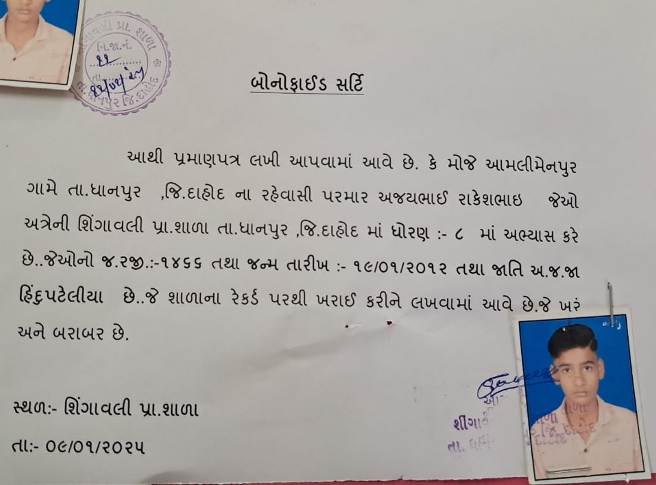 બોનોફાઈડ સર્ટિ
આથી પ્રમાણપત્ર લખી આપવામાં આવે છે. કે મોજે આમલીમેનપુર
ગામે તા.ધાનપુર ,જિ.દાહોદ ના રહેવાસી પરમાર અજયભાઈ રાકેશભાઇ જેઓ
અત્રેની શિંગાવલી પ્રા.શાળા તા.ધાનપુર ,જિ.દાહોદ માં ધોરણ :- ૮ માં અભ્યાસ કરે
છે..જેઓનો જ.રજી.:-૧૪૬૬ તથા જન્મ તારીખ :- ૧૯/૦૧/૨૦૧૨ તથા જાતિ અ.જ.જા
હિંદુપટેલીયા છે..જે શાળાના રેકર્ડ પરથી ખરાઈ કરીને લખવામાં આવે છે.જે ખરું
અને બરાબર છે.
સ્થળ:- શિંગાવલી પ્રા.શાળા
તા:- ૦૯/૦૧/૨૦૨૫